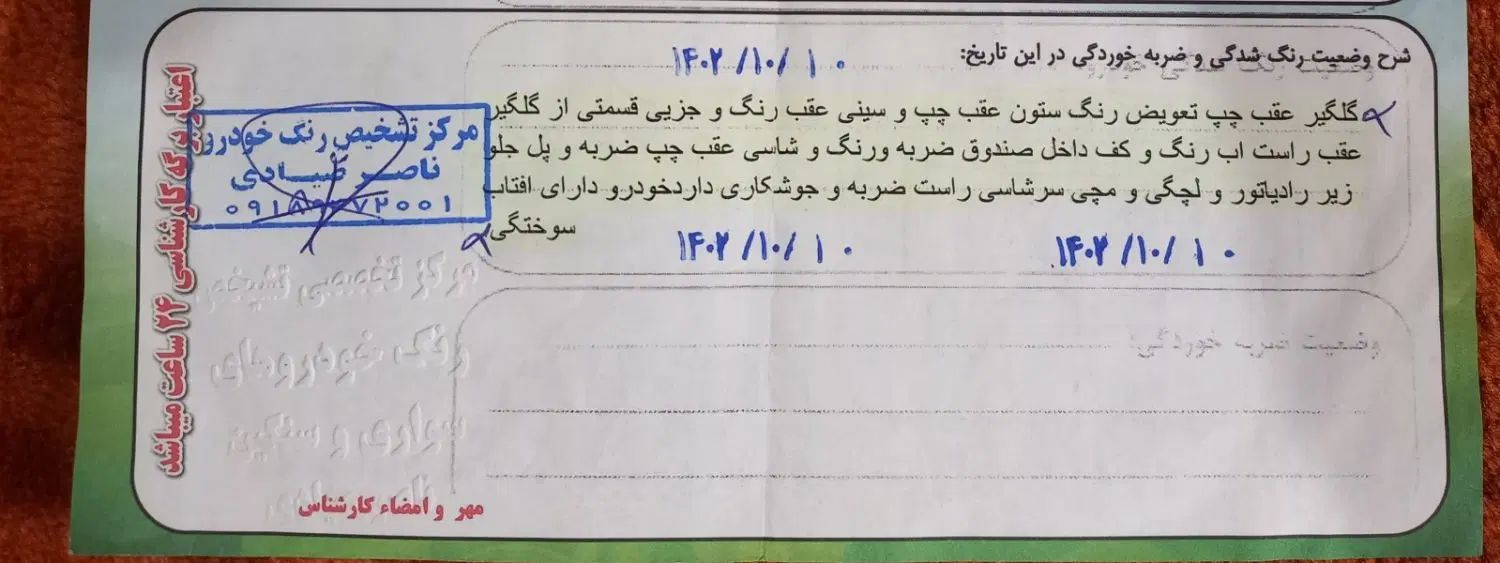 شرح وضعیت رنگ شدگی و ضربه خوردگی در این تاریخ:
۱۴۰۲/۱۰/۱۰
گلگیر عقب چپ تعویض رنگ ستون عقب چپ و سینی عقب رنگ و جزیی قسمتی از گلگیر
عقب راست اب رنگ و کف داخل صندوق ضربه ورنگ و شاسی عقب چپ ضربه و پل جلو
زیر رادیاتور و لچگی و مچی سرشاسی راست ضربه و جوشکاری داردخودرو دارای افتاب
سوختگی
۱۴۰۲/۱۰/۱۰
۱۴۰۲/۱۰/۱۰
مرکز تشخیص رنگ خودرو
ناصر
اعتبار برگه کارشناسی ۲۴ ساعت میباشد
وضعیت ضربه خوردگی:
مرکز تخصصی تشخیص
رنگ خودروهای
سواری و سنگین
مهر و امضاء کارشناس